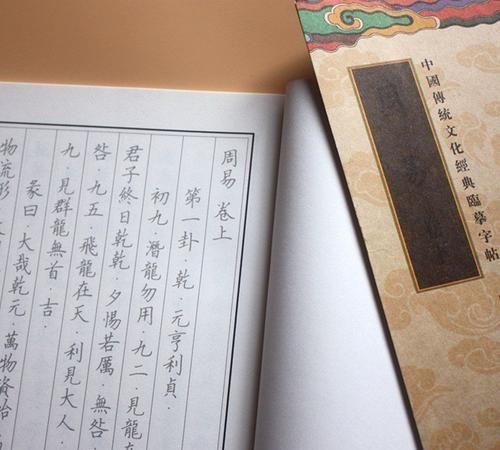 周易 卷上
第一卦.乾.元亨利貞.
初九.潛龍勿用.九二.見龍在
君子終日乾乾.夕惕若厲.無咎.
咎.九五.飛龍在天.利見大人.
九.見群龍無首.吉.
彖曰.大哉乾元.萬物資始.
物流形.
中國傳統文化經典臨摹字帖